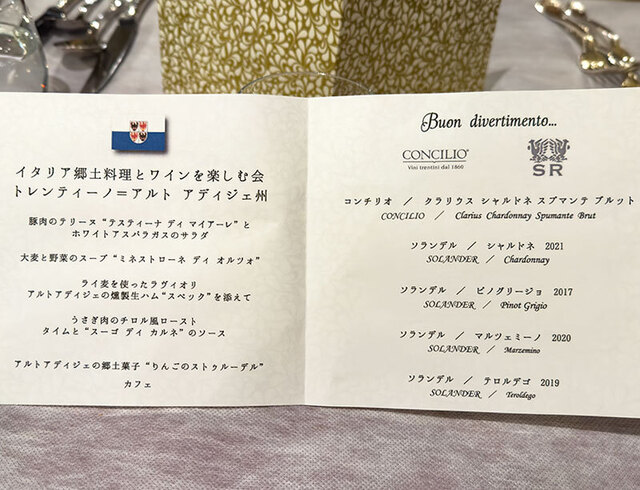 イタリア郷土料理とワインを楽しむ会
トレンティーノ=アルト アディジェ州
豚肉のテリーヌ“テスティーナ ディ マイアーレ”と
ホワイトアスパラガスのサラダ
大麦と野菜のスープ“ミネストローネ ディ オルツォ”
ライ麦を使ったラヴィオリ
アルトアディジェの燻製生ハム“スペック”を添えて
うさぎ肉のチロル風ロースト
タイムと“スーゴ ディ カルネ”のソース
アルトアディジェの郷土菓子“りんごのストゥルーデル”
カフェ
Buon divertimento...
CONCILIO
Vini trentini dal 1860
SR
コンチリオ / クラリウス シャルドネ スプマンテ ブルット
CONCILIO / Clarius Chardonnay Spumante Brut
ソランデル / シャルドネ 2021
SOLANDER / Chardonnay
ソランデル / ピノグリージョ 2017
SOLANDER / Pinot Grigio
ソランデル / マルツェミーノ 2020
SOLANDER / Marzemino
ソランデル / テロルデゴ 2019
SOLANDER / Teroldego